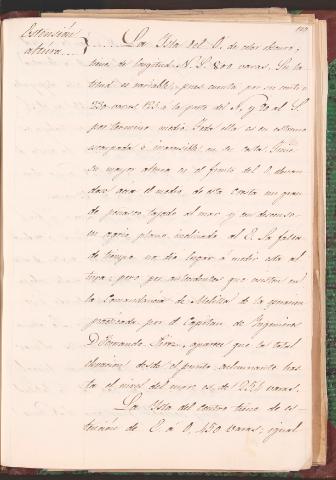 Estension
altura
La Isla del O. de color oscuro,
tiene de longitud N. S. 800 varas. Su la-
titud es variable, pues cuenta por su centro
250 varas, 125 a la parte del N. y 70 al S.
por termino medio. Toda ella es en estremo
escarpada e inaccesible en su costa. Tiene
su mayor altura en el frente del O. aban-
cia el medio, de esta Costa un gran-
de peñasco tajado al mar y en descenso
plano inclinado al E. La falta
de tiempo no dio lugar a medir esta al-
tura; pero por antecedentes que existen en
la Comandancia de Melilla de la
practicada por el Capitan de Ingenieros
D. Fernando aparece que la total
elevacion desde el punto culminante has-
ta el nivel del mar es de varas.
La Isla del centro tiene de es-
tencion de E. á O. 450 varas; igual